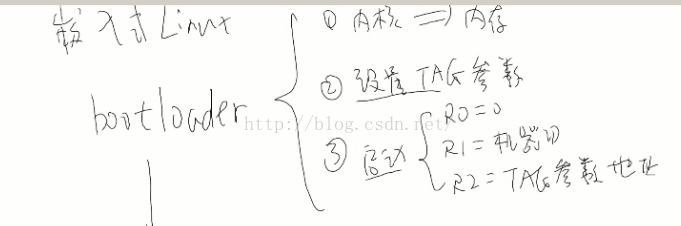 嵌入式Linux
bootloader
① 内核 => 内存
② 设置TAG参数
③ 启动
R0=0
R1=机器ID
R2=TAG参数地址
http://blog.csdn.net/